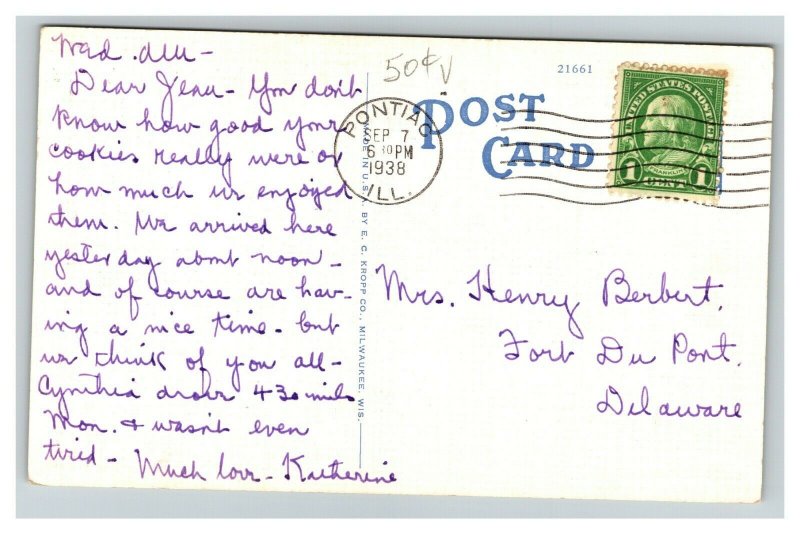 Wed. aft -
Dear Jean - You don't
know how good your
cookies really were or
how much we enjoyed
them. We arrived here
yesterday about noon -
and of course are hav-
ing a nice time - but
we think of you all -
Cynthia drove 430 miles
Mon. & wasn't even
tired - Much love - Katherine
50¢
PONTIAC
SEP 7
6 30 PM
1938
ILL.
POST
CARD
21661
MADE IN U.S.A. BY E. C. KROPP CO., MILWAUKEE, WIS.
UNITED STATES POSTAGE
FRANKLIN
1 CENT 1
Mrs. Henry Berbert,
Fort Du Pont,
Delaware